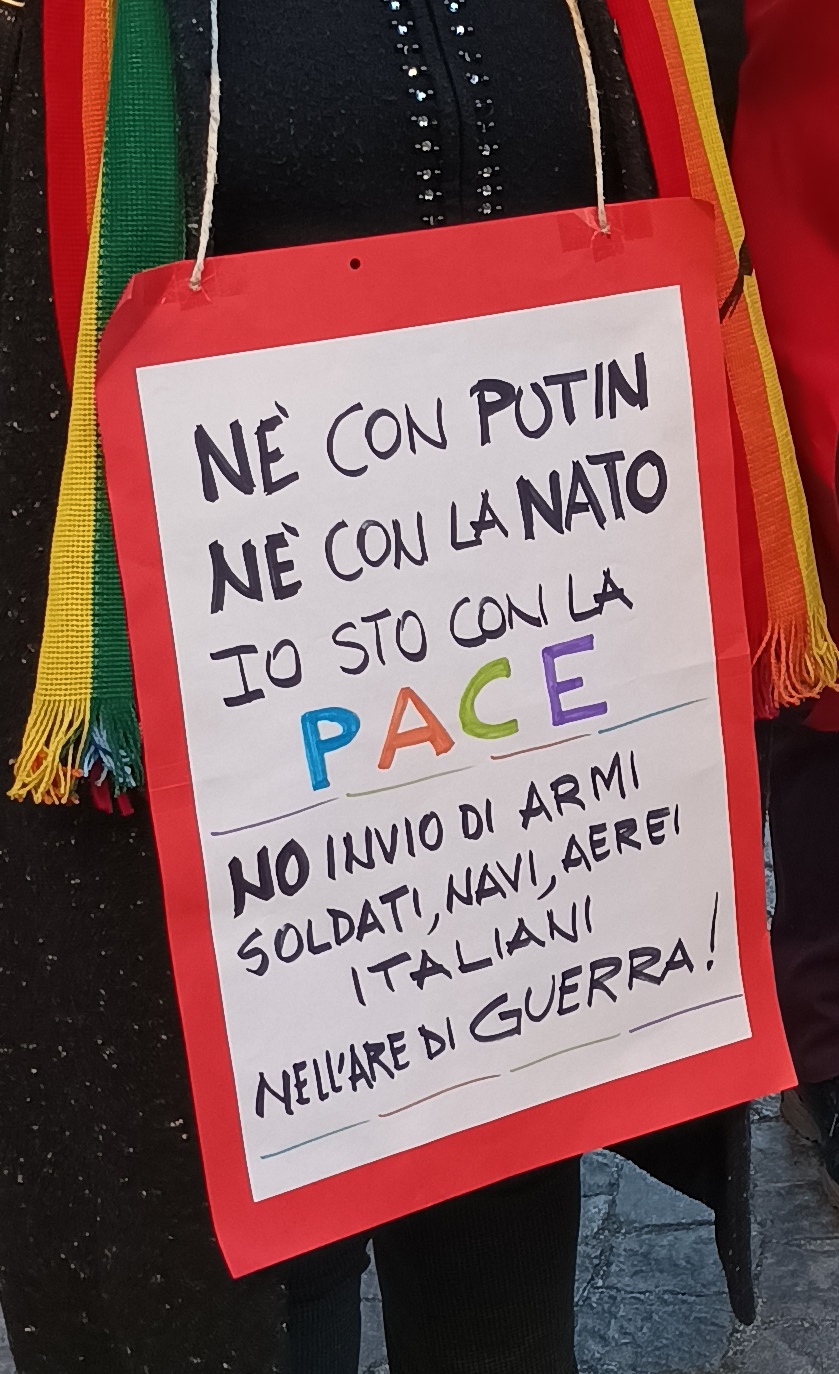 NÈ CON PUTIN
NÈ CON LA NATO
IO STO CON LA
PACE
NO INVIO DI ARMI
SOLDATI, NAVI, AEREI
ITALIANI
NELL'ARE DI GUERRA!